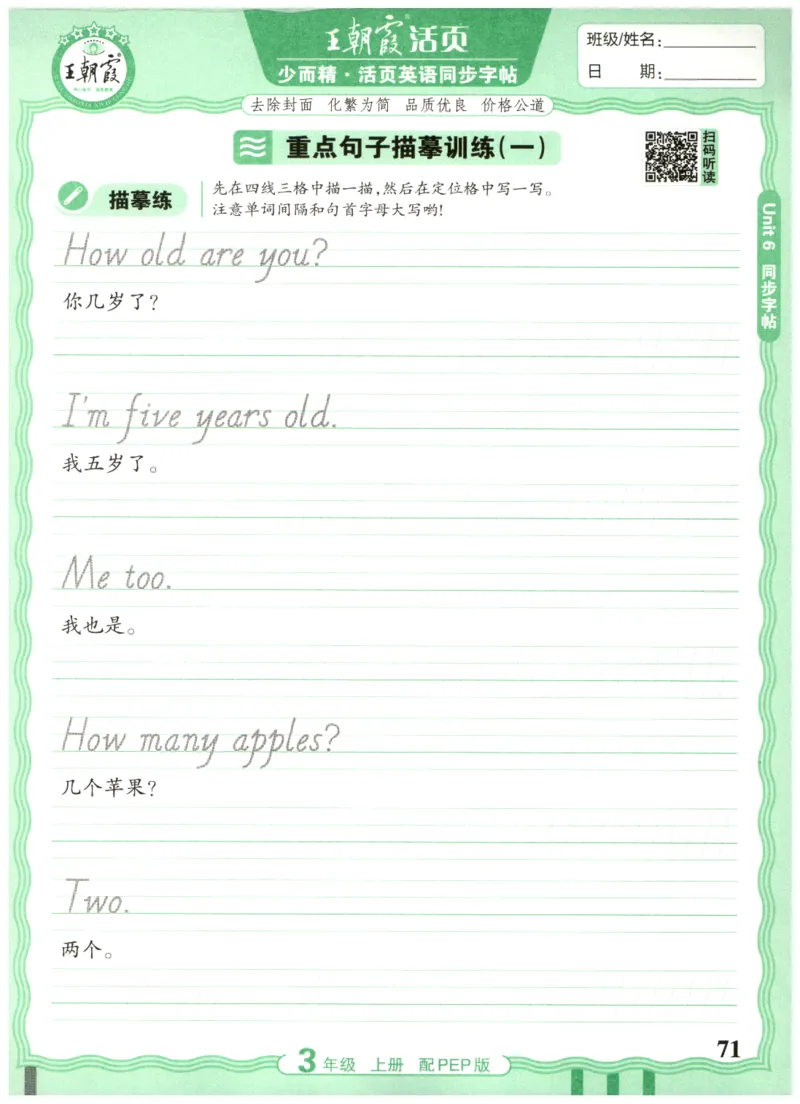 王朝霞
王朝霞活页
少而精·活页英语同步字帖
班级/姓名:
日 期:
去除封面 化繁为简 品质优良 价格公道
重点句子描摹训练(一)
扫码听读
描摹练
先在四线三格中描一描,然后在定位格中写一写。
注意单词间隔和句首字母大写哟!
Unit 6 同步字帖
How old are you?
你几岁了?
I'm five years old.
我五岁了。
Me too.
我也是。
How many apples?
几个苹果?
Two.
两个。
71
3年级 上册 配PEP版